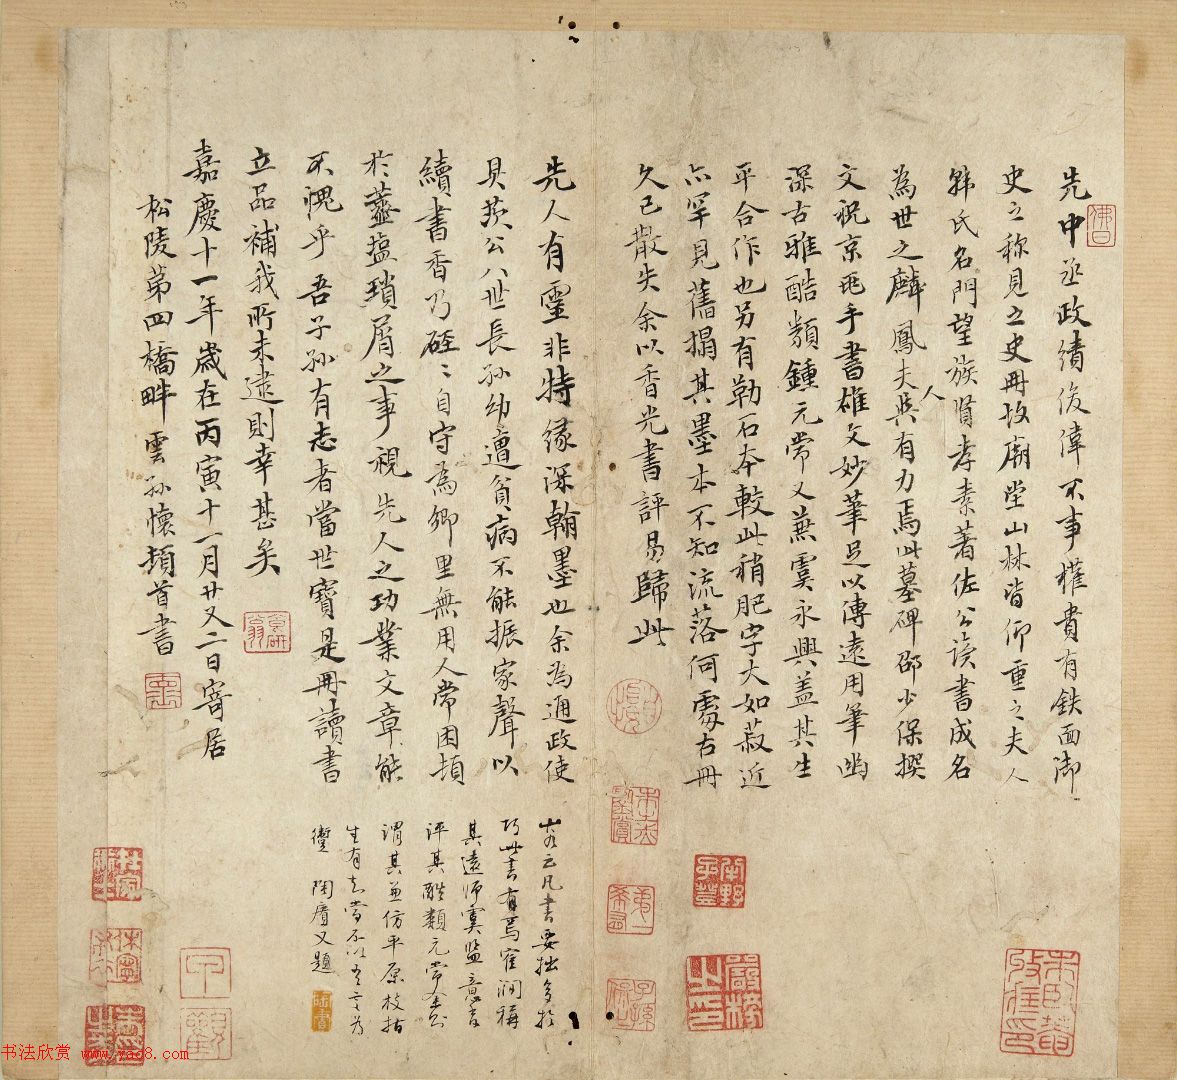 先中丞政績俊偉不事權貴有鉄面御
史之称見之史冊故廟堂山林皆仰重之夫人
韩氏名門望族賢孝素著佐公读書成名
為世之麟鳳夫人與有力焉此墓碑邵少保撰
文祝京兆手書雄文妙筆足以傳遠用筆幽
深古雅酷類鍾元常又兼虞永興盖其生
平合作也另有勒石本較此稍肥字大如菽近
亦罕見舊搨其墨本不知流落何處右冊
久已散失余以香光書評易歸此
先人有靈非特缘深翰墨也余為通政使
貝羨公八世長孙幼遭貧病不能振家聲以
續書香乃硁〻自守為鄉里無用人常困頓
於虀塩瑣屑之事視先人之功業文章能
不愧乎吾子孙有志者當世寶是冊讀書
立品補我所未逮則幸甚矣
嘉慶十一年歲在丙寅十一月廿又二日寄居
松陵第四橋畔雲孙懷頓首書
玄云凡書要拙多於
巧此書有焉
其遠师虞监
評其酷類元常
謂其兼仿平原
生有知當不以吾言為
陶賡又題
书法欣赏 www.yac8.com